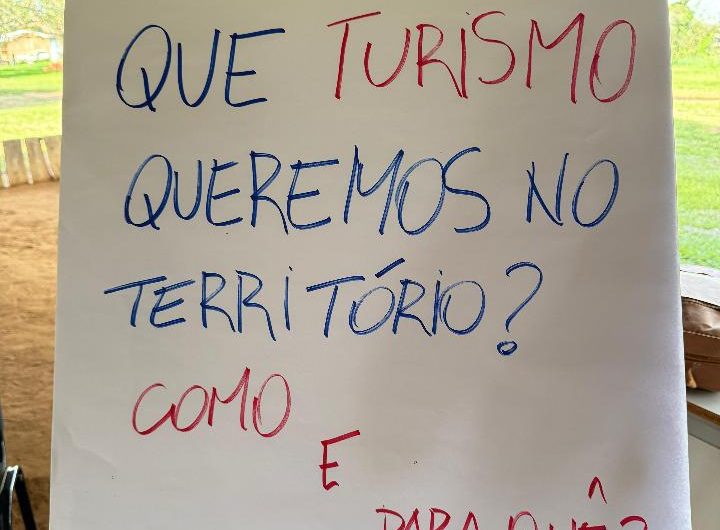 QUE TURISMO
QUEREMOS NO
TERRITÓRIO?
COMO
E
PARA QUÊ?